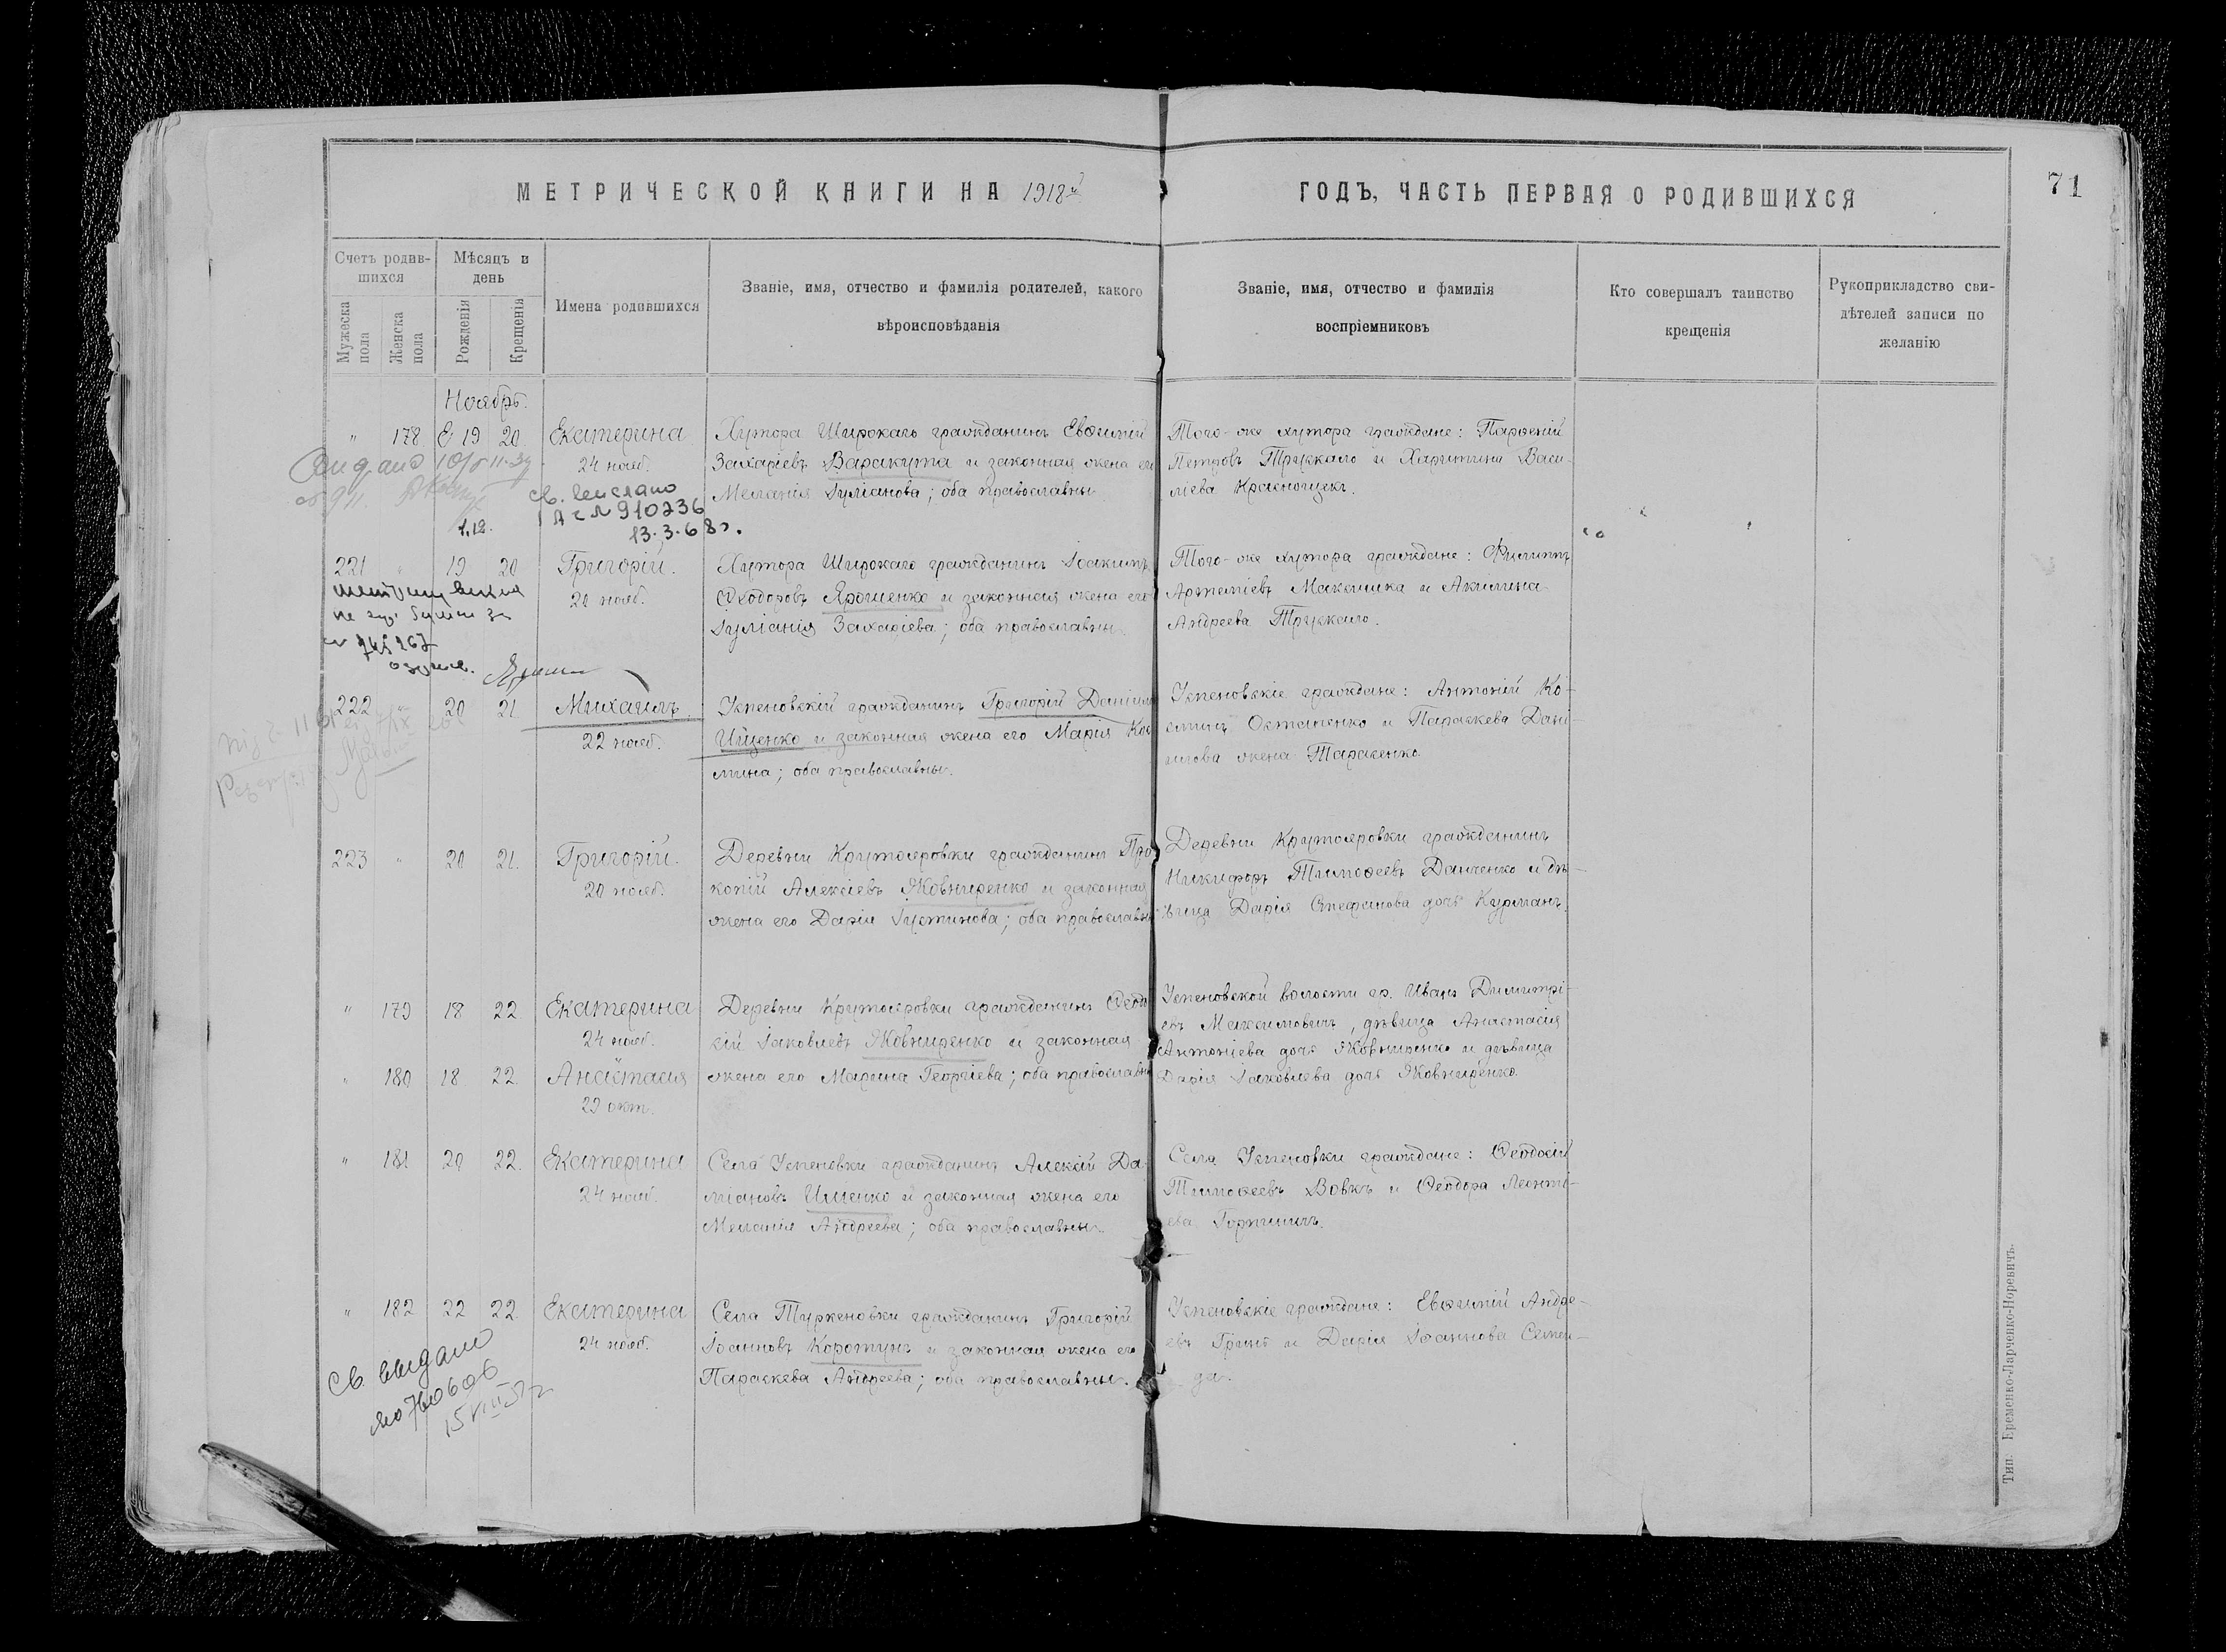 МЕТРИЧЕСКОЙ КНИГИ НА 1918й
ГОДЪ, ЧАСТЬ ПЕРВАЯ О РОДИВШИХСЯ
71
Счетъ родив-
шихся
Мужеска пола
Женска пола
Мѣсяцъ и
день
Рожденія
Крещенія
Имена родившихся
Званіе, имя, отчество и фамилія родителей, какого
вѣроисповѣданія
Званіе, имя, отчество и фамилія
воспріемниковъ
Кто совершалъ таинство
крещенія
Рукоприкладство сви-
дѣтелей записи по
желанію
Ноябрь.
" 178 19 20 Екатерина
24 нояб.
Хутора Широкаго гражданинъ Евѳимій
Захаріевъ Варакута и законная жена его
Меланія Іуліанова; оба православны
Того-же хутора граждане: Парѳеній
Петровъ Труккало и Харитина Васи-
ліева Красношек
Св.
№ 910236
13.3.68г.
221 " 19 20 Григорій.
20 нояб.
Хутора Широкаго гражданинъ Іоакимъ
Ѳеодоровъ Ярошенко и законная жена его
Іуліанія Захаріева; оба православны.
Того-же хутора граждане: Филиппъ
Артеміевъ Макошика и Акилина
Андреева Труккало.
222 " 20 21 Михаилъ.
22 нояб.
Успеновскій гражданинъ Григорій Даніил
Ищенко и законная жена его Марія Кос
мина; оба православны.
Успеновскіе граждане: Антоній Ко-
сминъ Осташенко и Параскева Дані-
илова жена Тарасенко.
223 " 20 21. Григорій.
20 нояб.
Деревни Крутояровки гражданинъ Про
копій Алексіевъ Яковниренко и законная
жена его Дарія Іустинова; оба православн
Деревни Крутояровки гражданинъ
Никифоръ Тимоѳеевъ Данченко и дѣ-
вица Дарія Стефанова дочь Курманъ.
" 179 18 22 Екатерина
24 нояб.
" 180 18 22 Анастасія
29 окт.
Деревни Крутояровки гражданинъ Ѳеодо
сій Іаковлевъ Яковниренко и законная
жена его Марина Георгіева; оба православн
Успеновской волости гр. Иванъ Димитрі-
евъ Максимовичъ, дѣвица Анастасія
Антоніева дочь Яковниренко и дѣвица
Дарія Іаковлева дочь Яковниренко.
" 181 20 22. Екатерина
24 нояб.
Села Успеновки гражданинъ Алексій Да-
міановъ Ищенко и законная жена его
Меланія Андреева; оба православны.
Села Успеновки граждане: Ѳеодосій
Тимоѳеевъ Вовкъ и Ѳеодора Леонті-
ева
" 182 22 22 Екатерина
24 нояб.
Села Туркеновки гражданинъ Григорій
Іоанновъ Коротунъ и законная жена его
Параскева Андреева; оба православны.
Успеновскіе граждане: Евѳимій Андре-
евъ Гринь и Дарія Іоаннова Семен-
да.
Св. выдано
Тип. Еременко-Ларченко-Норевичъ.